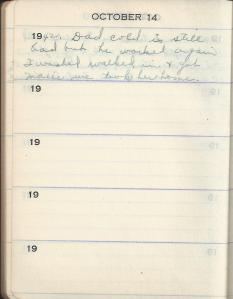 OCTOBER 14
1942. Dad cold is still
bad but he worked again
I washed walked in & got
we took her home.
19
19
19
19